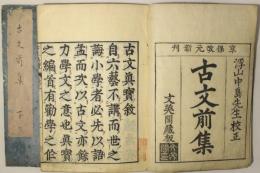 享保改元新刊
浮山中島先生校正
古文前集
古文眞寶敘
自六藝不講而世之
誨小學者必先以語
孟而次以古文亦餘
力學文之意也眞寶
之編首有勸學之作
古文前集